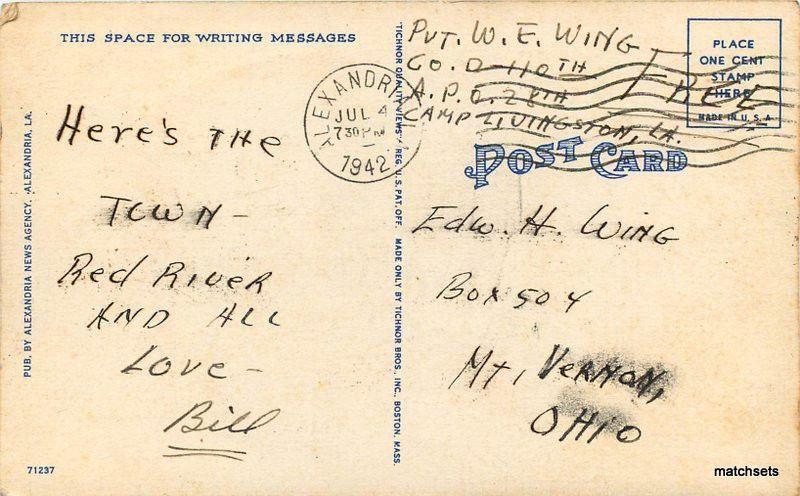 THIS SPACE FOR WRITING MESSAGES
Here's the
Town -
Red River
And all
Love -
Bill
PUB. BY ALEXANDRIA NEWS AGENCY, ALEXANDRIA, LA.
71237
"TICHNOR QUALITY VIEWS" REG. U.S. PAT. OFF. MADE ONLY BY TICHNOR BROS., INC., BOSTON, MASS.
ALEXANDRIA
JUL 4
730PM
1942
Pvt. W. E. Wing
Co. D-110th
A.P.O. 28th
Camp Livingston, La.
Free
PLACE
ONE CENT
STAMP
HERE
MADE IN U.S.A.
POST CARD
Edw. H. Wing
Box 504
Mt. Vernon,
Ohio
matchsets